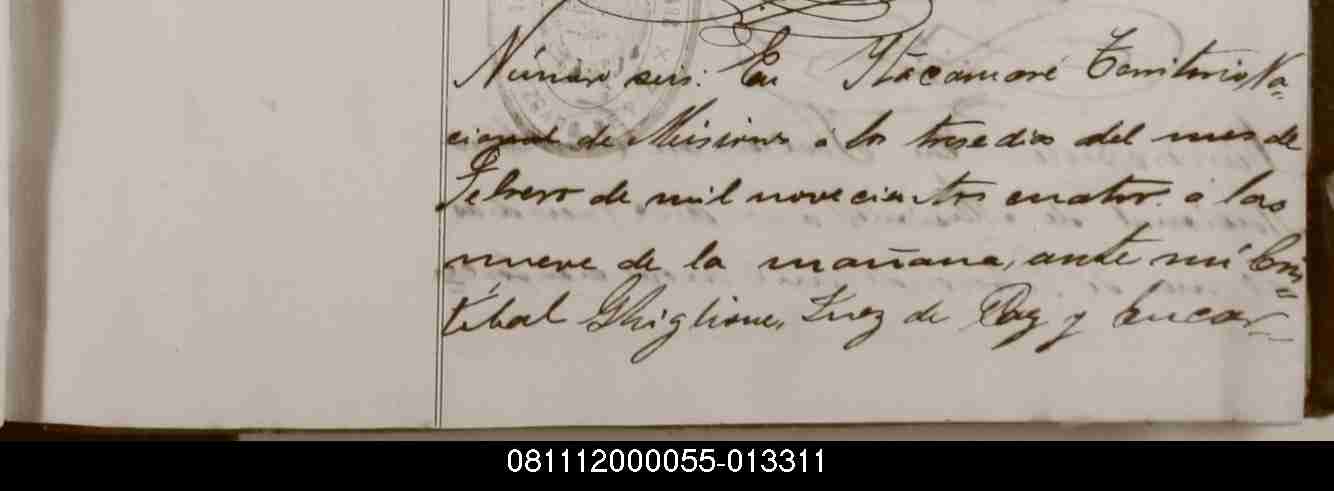 Número seis. En Itacaruaré Territorio Na=
cional de Misiones á los trese dias del mes de
Febrero de mil novecientos cuator. á las
nueve de la mañana, ante mí Cris=
tóbal Ghiglione, Juez de Paz y Encar=
081112000055-013311